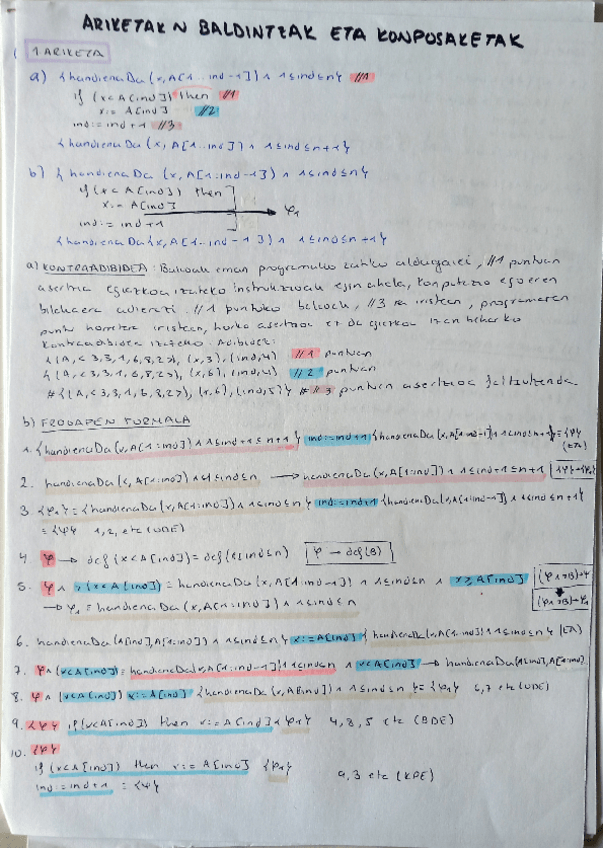 ARIKETAK N BALDINTZAK ETA KONPOSAKETAK
1 ARIKETA
a) {handienaDa(x,A[1..ind-1]) ∧ 1≤ind≤n} //1
if (x<A[ind]) then //1
x:=A[ind] //2
ind:=ind+1 //3
{handienaDa(x,A[1..ind]) ∧ 1≤ind≤n+1}
b) {handienaDa(x,A[1:ind-1]) ∧ 1≤ind≤n}
if(x<A[ind]) then
x:=A[ind] φ1
ind:=ind+1
{handienaDa(x,A[1..ind-1]) ∧ 1≤ind≤n+1}
a) KONTRAADIBIDEA: Balioak eman programako aldagaiei, //1 puntuan
asertzioa egiazkoa izateko instrukzioak egin ahala, konputazio egoeren
//1 puntuko balioak, //3 ra iristean, programaren
puntu horretara iristean, asertzioa ez da egiazkoa izan beharko
kontraadibidea izateko. Adibidez:
{(A,<3,3,1,6,8,2>),(x,3),(ind,4)} //1 puntuan
{(A,<3,3,1,6,8,2>),(x,6),(ind,4)} //2 puntuan
{(A,<3,3,1,6,8,2>),(x,6),(ind,5)} //3 puntuan asertzioa
b) FROGAPEN FORMALA
1. {handienaDa(x,A[1:ind]) ∧ 1≤ind+1≤n+1} ind:=ind+1 {handienaDa(x,A[1:ind-1]) ∧ 1≤ind≤n+1}
2. handienaDa(x,A[1:ind]) ∧ 1≤ind≤n → handienaDa(x,A[1:ind]) ∧ 1≤ind+1≤n+1
3. {φ1}={handienaDa(x,A[1:ind]) ∧ 1≤ind≤n} ind:=ind+1 {handienaDa(x,A[1:ind-1]) ∧ 1≤ind≤n+1}
={ψ} 1,2, eta (ODE)
4 φ → def(x<A[ind])=def(1≤ind≤n) φ → def(B)
5. φ ∧ ¬(x<A[ind]) = handienaDa(x,A[1:ind-1]) ∧ 1≤ind≤n ∧ x≥A[ind]
→ φ1 = handienaDa(x,A[1:ind]) ∧ 1≤ind≤n (φ∧¬B)→φ1
6. handienaDa(A[ind],A[1:ind]) ∧ 1≤ind≤n} x:=A[ind] {handienaDa(x,A[1:ind]) ∧ 1≤ind≤n}
7. φ ∧ (x<A[ind]) = handienaDa(x,A[1:ind-1]) ∧ 1≤ind≤n ∧ x<A[ind] → handienaDa(A[ind],A[1:ind])
8. φ ∧ (x<A[ind]) x:=A[ind] {handienaDa(x,A[1:ind]) ∧ 1≤ind≤n}={φ1} 6,7 eta (ODE)
9. {φ} if(x<A[ind]) then x:=A[ind] {φ1} 4,8,5 eta (BDE)
10. {φ}
if(x<A[ind]) then x:=A[ind] {φ1} 9,3 eta (KPE)
ind:=ind+1 = {ψ}